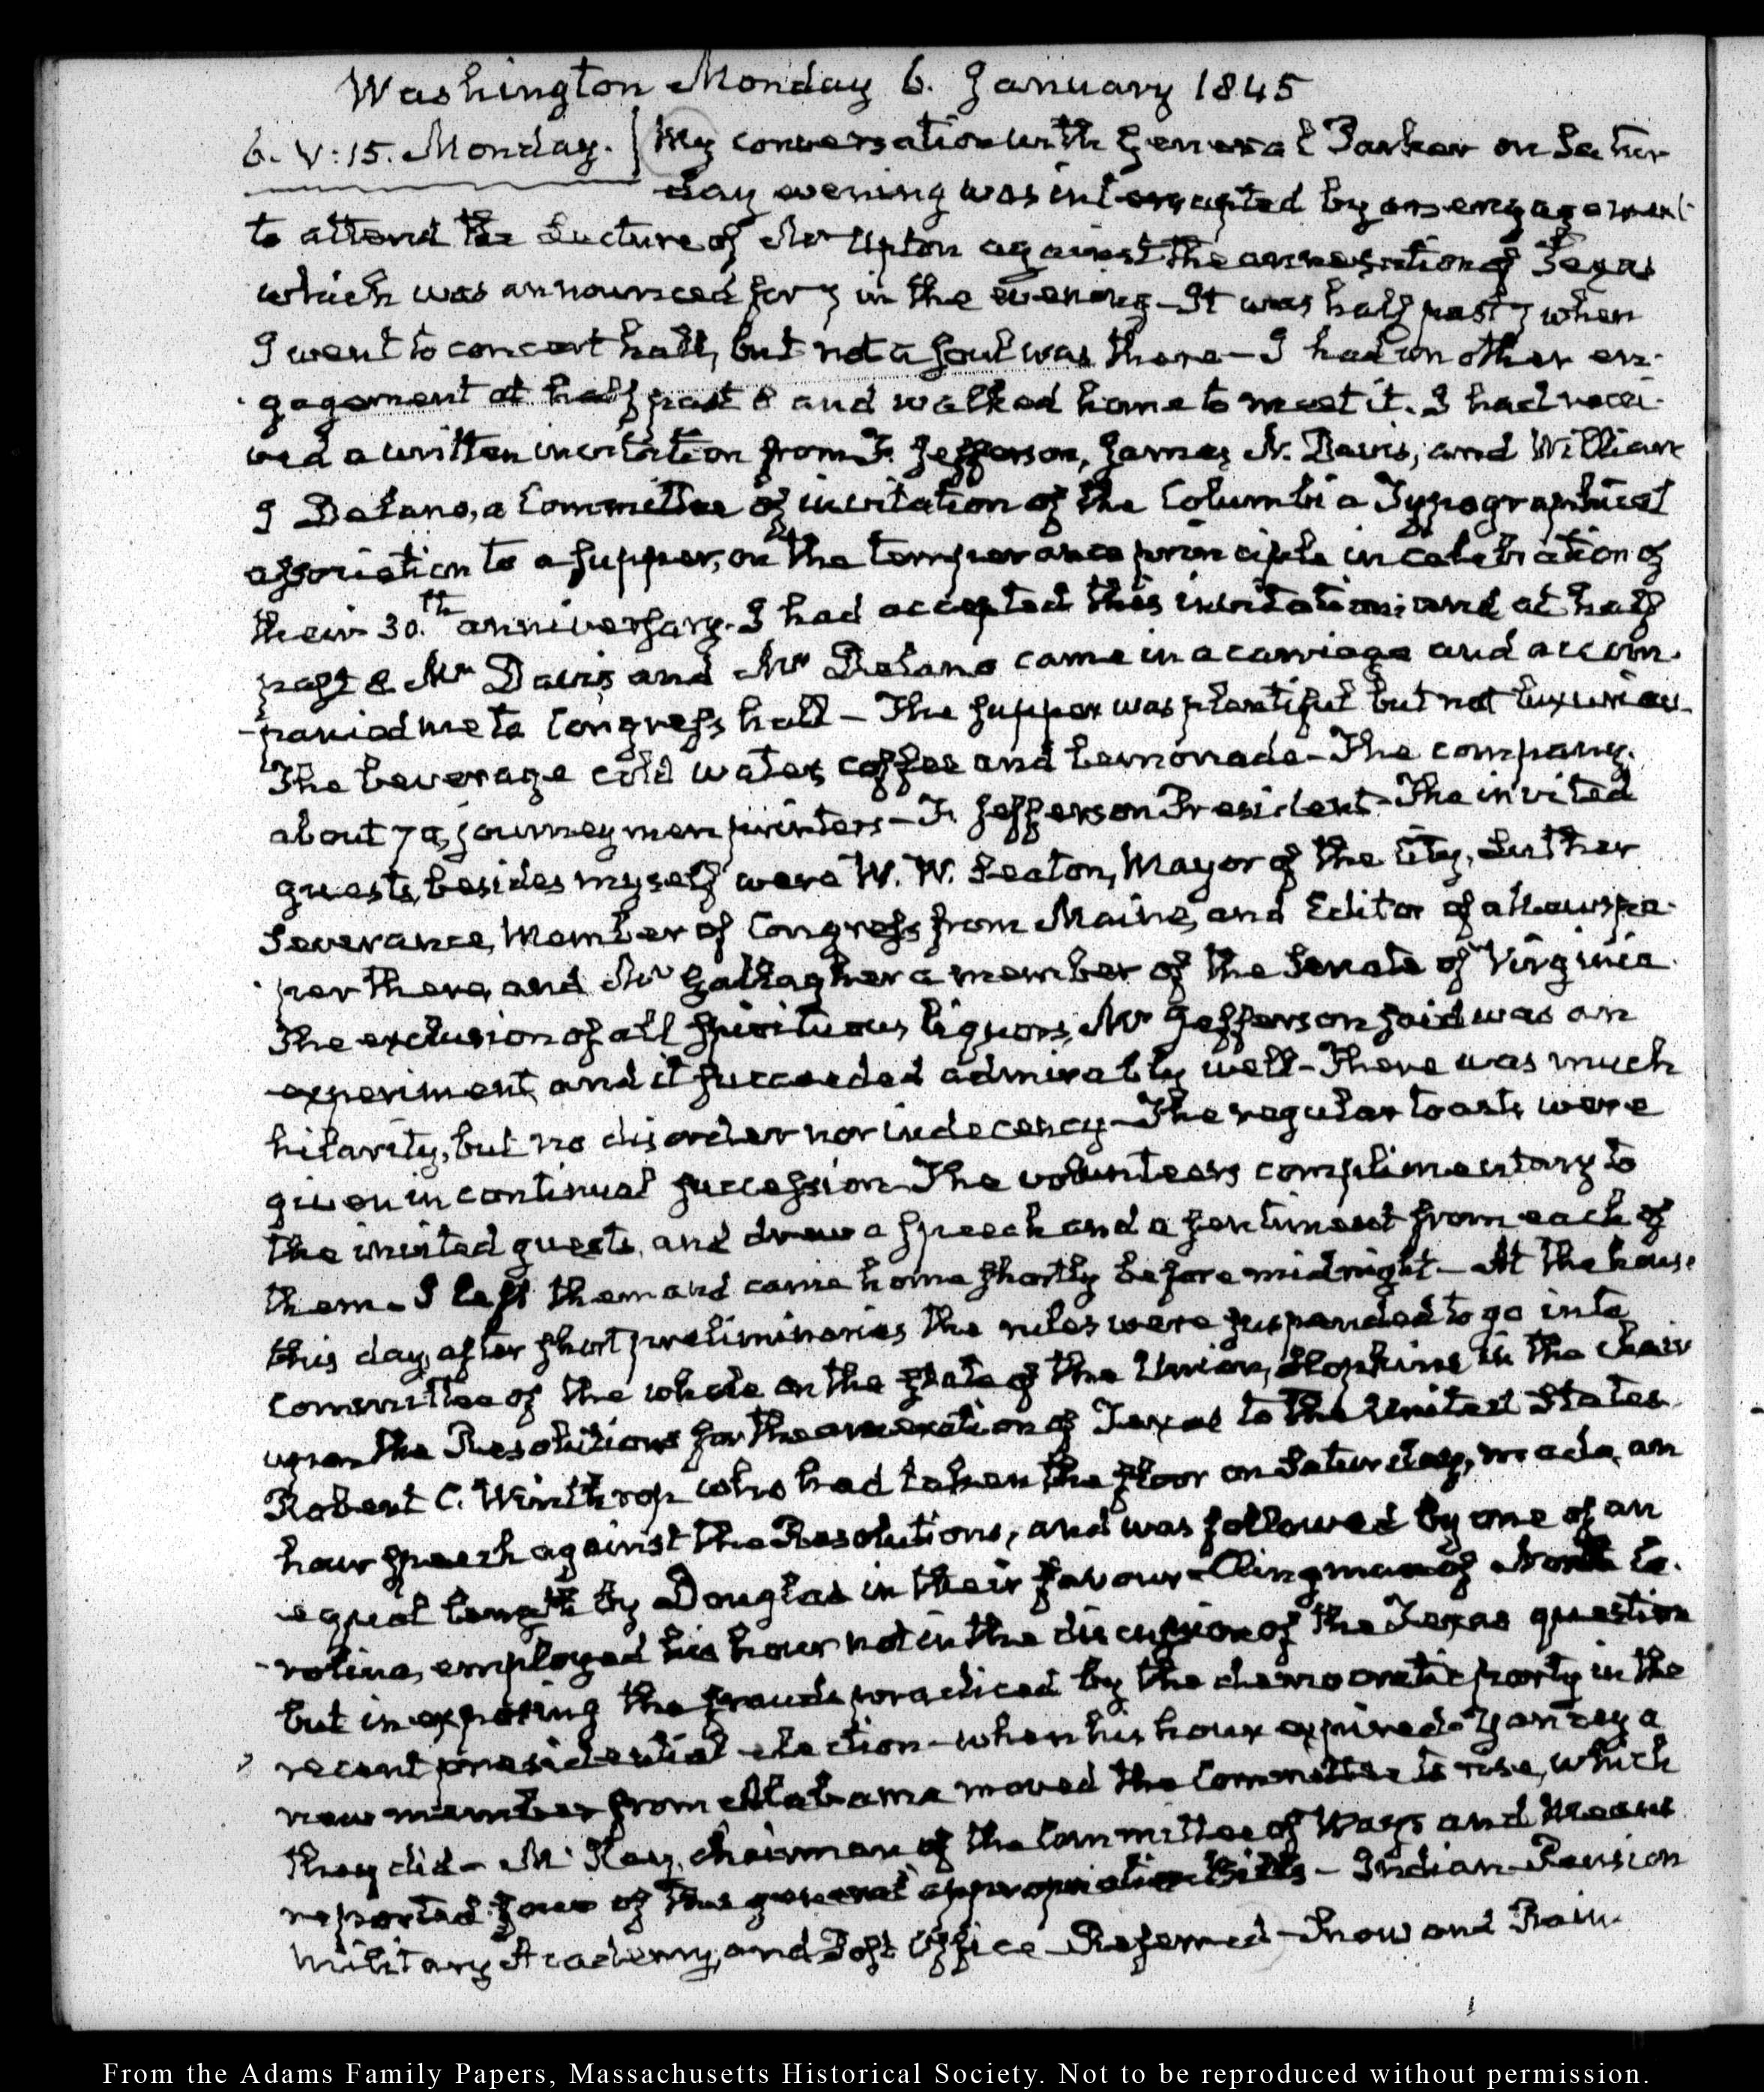 Washington Monday 6. January 1845
6. V:15. Monday. My conversation with General Parker on Satur
day evening was interrupted by an engagement
to attend the Lecture of Mr Upton against the annexation of Texas
which was announced for 7 in the evening – It was half past 7 when
I went to concert hall, but not a soul was there – I had an other en-
gagement at half past 8 and walked home to meet it. I had recei-
ved a written invitation from F. Jefferson, James N. Davis, and William
J Delano, a Committee of invitation of the Columbia Typographical
association to a supper, on the temperance principle in celebration of
their 30.th anniversary. I had accepted this invitation; and at half
past 8 Mr Davis and Mr Delano came in a carriage and accom-
-panied me to Congress hall – The supper was plentiful but not luxurious.
The beverage cold water, coffee and lemonade – The company.
about 70, journeymen printers – F. Jefferson President – The invited
guests, besides myself were W. W. Seaton, Mayor of the City, Luther
Severance, Member of Congress from Maine, and Editor of a Newspa-
per there, and Mr Gallagher a member of the Senate of Virginia.
The exclusion of all spirituous liquors, Mr Jefferson said was an
experiment, and it succeeded admirably well – There was much
hilarity, but no disorder nor indecency – The regular toasts were
given in continual succession – The volunteers complimentary to
the invited guests, and drew a speech and a sentiment from each of
them – I left them and came home shortly before midnight – At the house
this day, after short preliminaries the rules were suspended to go into
Committee of the whole on the state of the Union, Hopkins in the chair
upon the Resolutions for the annexation of Texas to the United States.
Robert C. Winthrop who had taken the floor on Saturday, made, an
hour speech against the Resolutions, and was followed by one of an
equal length by Douglas in their favour – Clingman of North Ca-
-rolina, employed his hour not in the discussion of the Texas question
but in exposing the frauds practiced by the democratic party in the
recent presidential election – when his hour expired – Yancey a
new member from Alabama moved the Committee to rise, which
they did – Mc Kay, chairman of the Committee of Ways and Means
reported four of the general appropriation Bills – Indian – Pension
Military Academy, and Post Office – Referred – Snow and Rain.
From the Adams Family Papers, Massachusetts Historical Society. Not to be reproduced without permission.